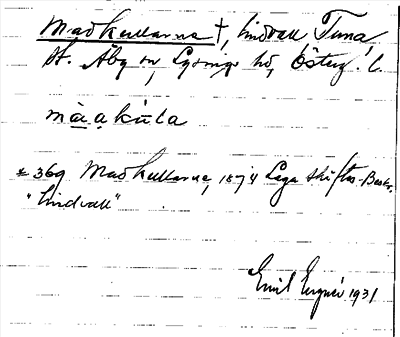 Madkullarna †, Lindvall Tuna,
St. Åby sn, Lysings hd, Östergl. l.
màakùla
* 369 Madkullarne, 1874 Laga skiftes-Beskr.
"Lindvall"
Emil 1931